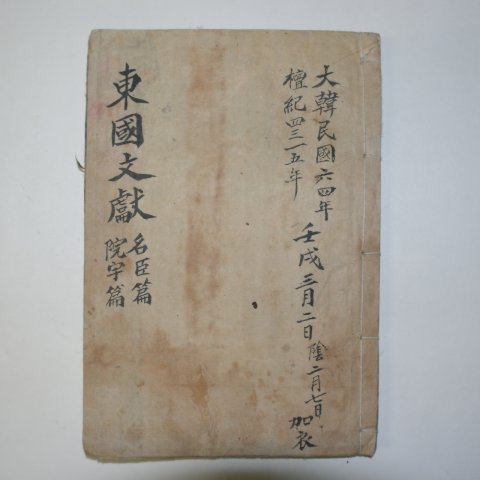 大韓民國六四年
檀紀四三一五年
壬戌三月二日陰二月七日加衣
東國文獻
名臣篇
院宇篇